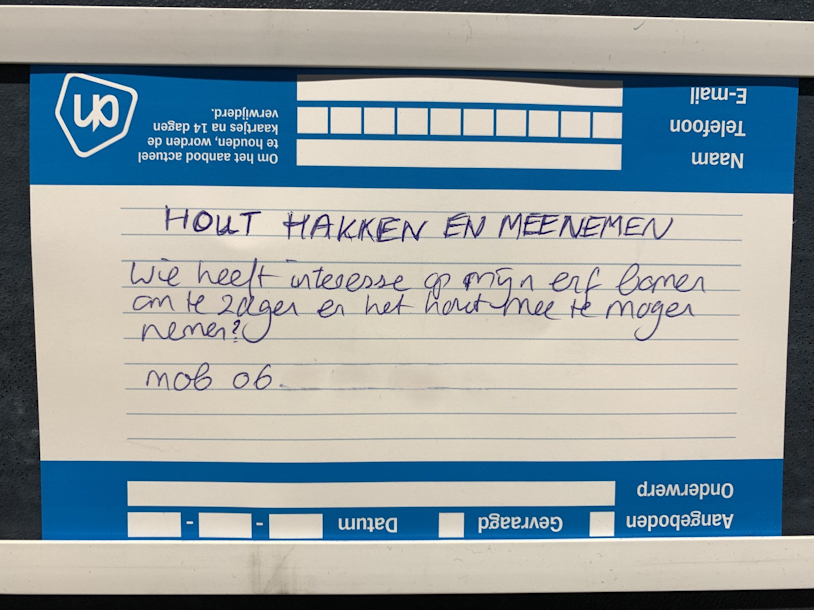 HOUT HAKKEN EN MEENEMEN
Wie heeft interesse op mijn erf bomen
om te zagen en het hout mee te mogen
nemen?
mob 06
Aangeboden
Gevraagd
Datum
Onderwerp
Naam
Telefoon
E-mail
Om het aanbod actueel
te houden, worden de
kaartjes na 14 dagen
verwijderd.
ah